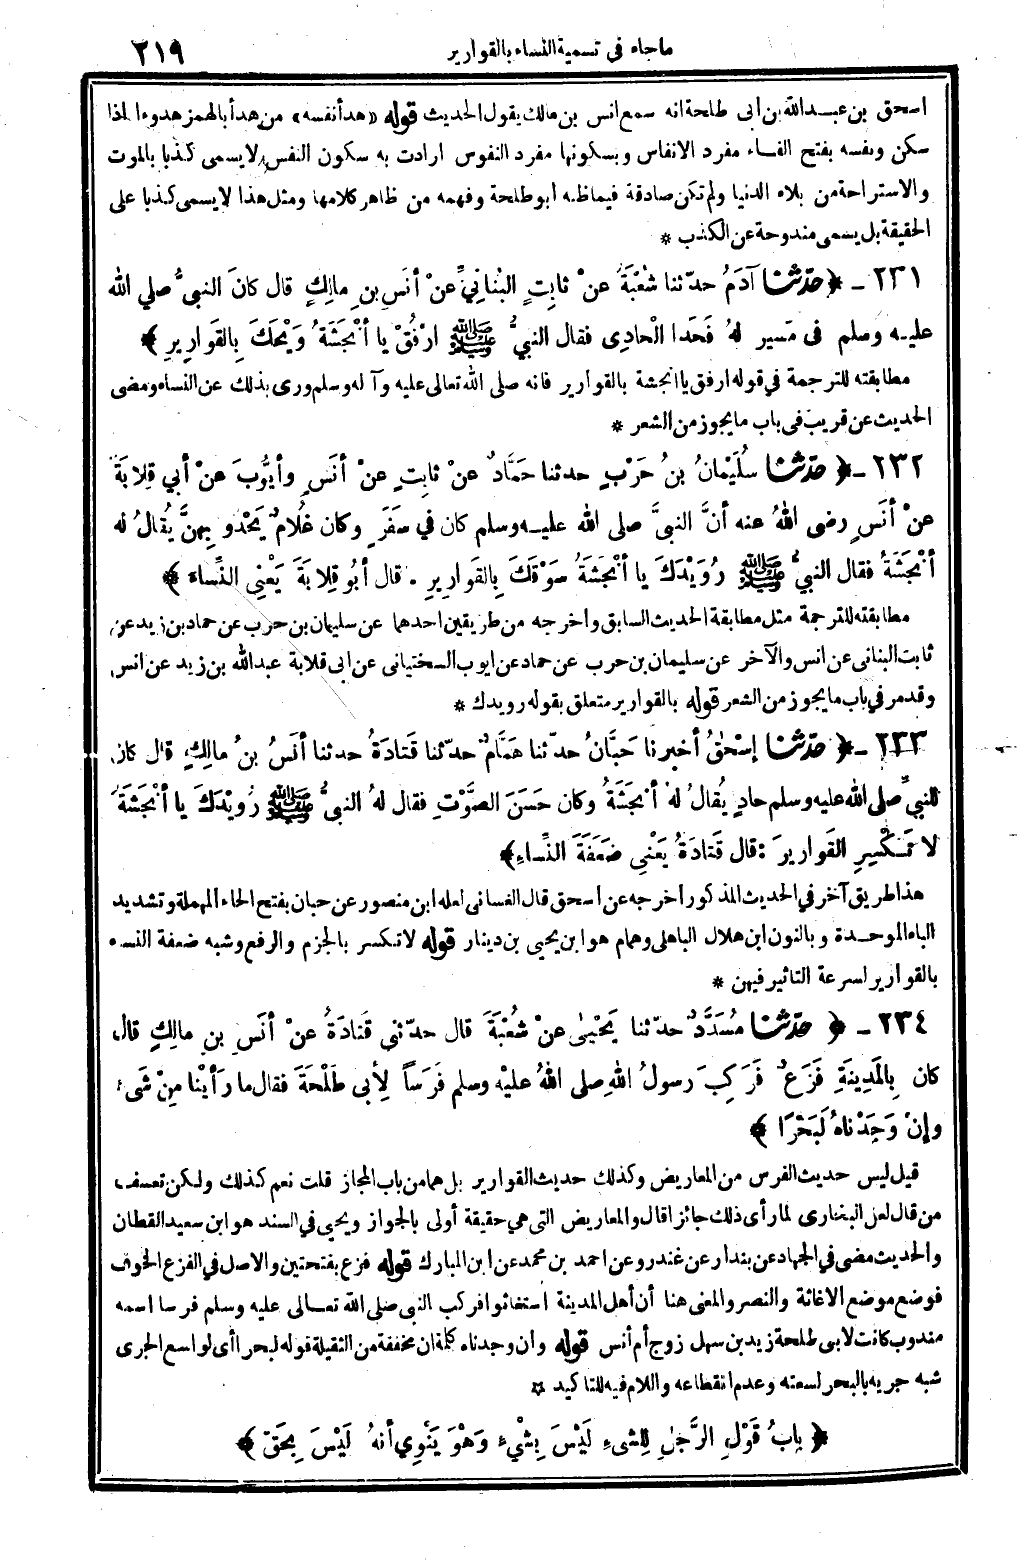 ماجاء في تسمية النساء بالقوارير ٢١٩
اسحق بن عبدالله بن أبى طلحة انه سمع انس بن مالك يقول الحديث قوله «هدأ نفسه» من هدأ بالهمز هدوءا اذا
سكن ونفسه بفتح الفاء مفرد الانفاس وبسكونها مفرد النفوس ارادت به سكون النفس لايسمى كذبا بالموت
والاستراحة من بلاء الدنيا ولم تكن صادقة فيما ظنه أبو طلحة وفهمه من ظاهر كلامها ومثل هذا لايسمى كذبا على
الحقيقة بل يسمى مندوحة عن الكذب *
٢٣١ - ﴿ حدّثنا آدَمُ حدّثنا شُعْبَةُ عنْ ثابِتٍ البُنانِيِّ عنْ أنَسِ بنِ مالِكٍ قال كانَ النبيُّ صلي الله
عليه وسلم فى مَسيرٍ لهُ فَحَدا الْحادِى فقال النبيُّ ﷺ ارْفُقْ يا أنْجَشَةُ وَيْحَكَ بِالقَوارِيرِ ﴾
مطابقته للترجمة في قوله ارفق يا انجشة بالقوارير فانه صلى الله تعالى عليه وآله وسلم ورى بذلك عن النساء ومضى
الحديث عن قريب فى باب مايجوز من الشعر *
٢٣٢ - ﴿ حدّثنا سُلَيْمانُ بنُ حَرْبٍ حدثنا حَمَّادٌ عنْ ثابتٍ عنْ أنَسٍ وأيُّوبَ عنْ أبي قِلابَةَ
عنْ أنَسٍ رضى اللهُ عنه أنَّ النبيَّ صلى الله عليه وسلم كان في سَفَرٍ وكان غُلامٌ يَحْدُو بِهِنَّ يُقالُ له
أنْجَشَةُ فقال النبيُّ ﷺ رُوَيْدَكَ يا أنْجَشَةُ سَوْقَكَ بِالقَوارِيرِ . قال أبُو قِلابَةَ يَعْنِى النِّساءَ ﴾
مطابقته للترجمة مثل مطابقة الحديث السابق واخرجه من طريقين احدهما عن سليمان بن حرب عن حماد بن زيد عن
ثابت البنانى عن انس والآخر عن سليمان بن حرب عن حماد عن ايوب السختيانى عن ابى قلابة عبدالله بن زيد عن انس
وقدمر في باب مايجوز من الشعر قوله بالقوارير متعلق بقوله رويدك *
٢٣٣ - ﴿ حدّثنا إسْحٰقُ أخبرنا حَبَّانُ حدّثنا هَمَّامٌ حدّثنا قَتادَةُ حدثنا أنَسُ بنُ مالِكٍ قال كان
للنبيِّ صلى الله عليه وسلم حادٍ يُقالُ لهُ أنْجَشَةُ وكان حَسَنَ الصَّوْتِ فقال لهُ النبيُّ ﷺ رُوَيْدَكَ يا أنْجَشَةُ
لا تَكْسِرِ القَوارِيرَ :قال قَتادَةُ يَعْنِي ضَعَفَةَ النِّساءِ﴾
هذا طريق آخر في الحديث المذكور اخرجه عن اسحق قال الغسانى لعله ابن منصور عن حبان بفتح الحاء المهملة وتشديد
الباء الموحدة وبالنون ابن هلال الباهلى وهمام هو ابن يحيى بن دينار قوله لاتكسر بالجزم والرفع وشبه ضعفة النساء
بالقوارير لسرعة التاثير فيهن *
٢٣٤ - ﴿ حدّثنا مُسَدَّدٌ حدّثنا يَحْيىٰ عنْ شُعْبَةَ قال حدّثني قَتادَةُ عنْ أنَسِ بنِ مالِكٍ قال
كان بِالْمَدِينَةِ فَزَعٌ فَرَكِبَ رسولُ اللهِ صلى اللهُ عليْه وسلم فَرَساً لِأبى طَلْحَةَ فقال ما رَأيْنا مِنْ شَىْءٍ
وإنْ وَجَدْناهُ لَبَحْرًا ﴾
قيل ليس حديث الفرس من المعاريض وكذلك حديث القوارير بل هما من باب المجاز قلت نعم كذلك ولكن تعسف
من قال لعل البخارى لما رأى ذلك جائزا قال والمعاريض التى هي حقيقة أولى بالجواز ويحيى في السند هو ابن سعيد القطان
والحديث مضى في الجهاد عن بندار عن غندر وعن احمد بن محمد عن ابن المبارك قوله فزع بفتحتين والاصل في الفزع الخوف
فوضع موضع الاغاثة والنصر والمعنى هنا أن أهل المدينة استغاثوا فركب النبي صلى الله تعالى عليه وسلم فرسا اسمه
مندوب كانت لابى طلحة زيد بن سهل زوج أم أنس قوله وأن وجدناه كلمة ان مخففة من الثقيلة قوله لبحرا أى لواسع الجرى
شبه جريه بالبحر لسعته وعدم انقطاعه واللام فيه للتاكيد *
﴿ بابُ قَوْلِ الرَّجُلِ لِلشىءِ لَيْسَ بِشَيْءٍ وَهْوَ يَنْوِي أنهُ لَيْسَ بِحَقٍّ ﴾